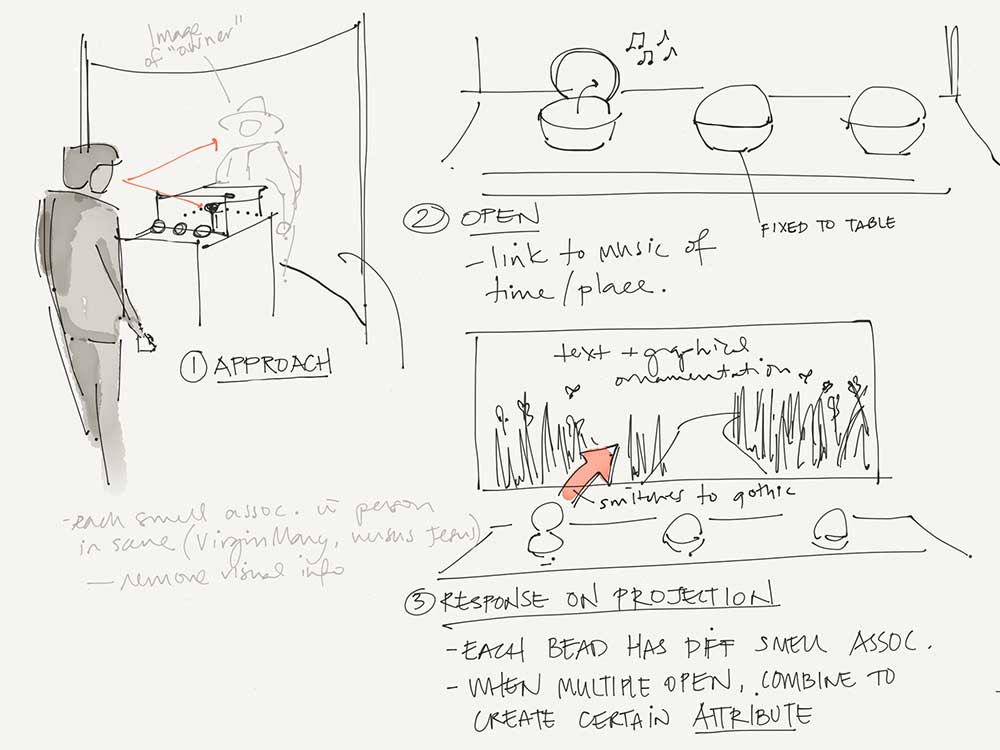 Image
of "owner"
① APPROACH
-each smell assoc. w person
in same (Virgin Mary, versus Jesus)
— remove visual info
② OPEN
- link to music of
time/place.
FIXED TO TABLE
text + graphical
ornamentation
switches to gothic
③ RESPONSE ON PROJECTION
- EACH BEAD HAS DIFF SMELL ASSOC.
- WHEN MULTIPLE OPEN, COMBINE TO
CREATE CERTAIN ATTRIBUTE